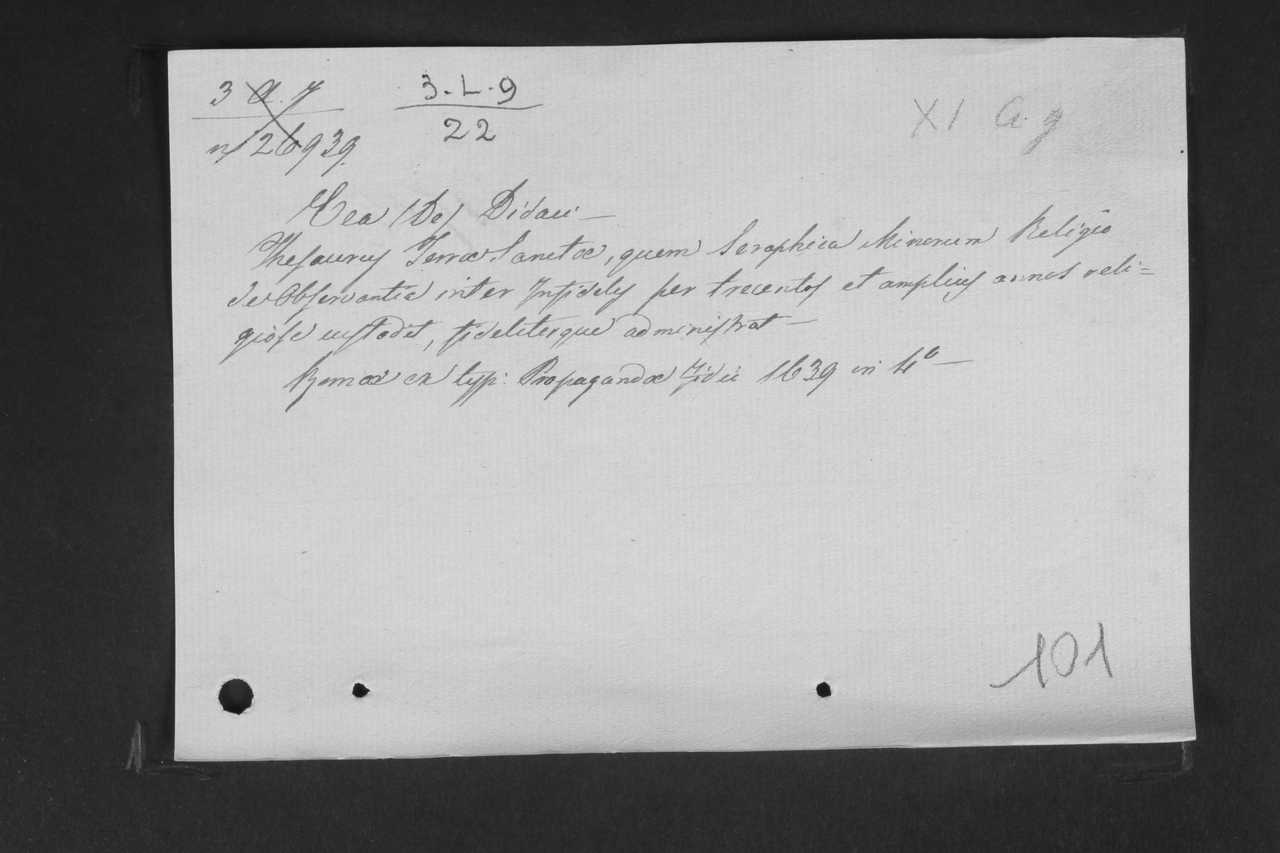 3 a. 7
3.L.9
22
XI a. g
n 26939.
Cea (De) Didaci —
Thesaurus Terræ Sanctæ, quem Seraphica Minorum Religio
de Observantia inter Infideles per trecentos et amplius annos reli=
giose custodit, fideliterque administrat —
Romæ ex typ: Propagandæ Fidei 1639 in 4º —
101